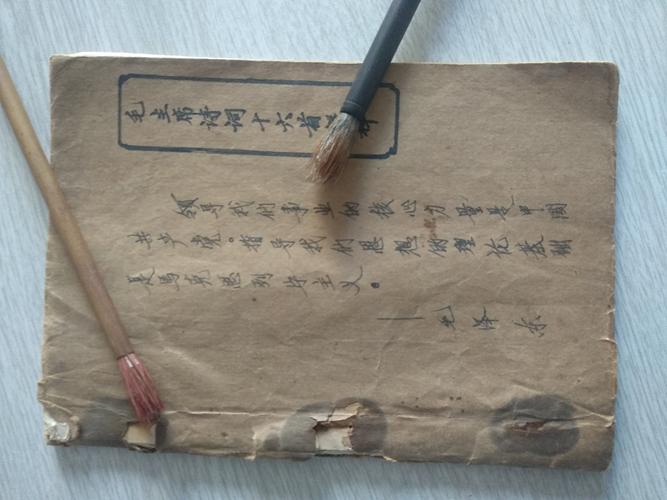 毛主席诗词十六首
领导我們事业的核心力量是中国
共产党。指导我們思想的理论基础
是馬克思列宁主义。
——毛泽东